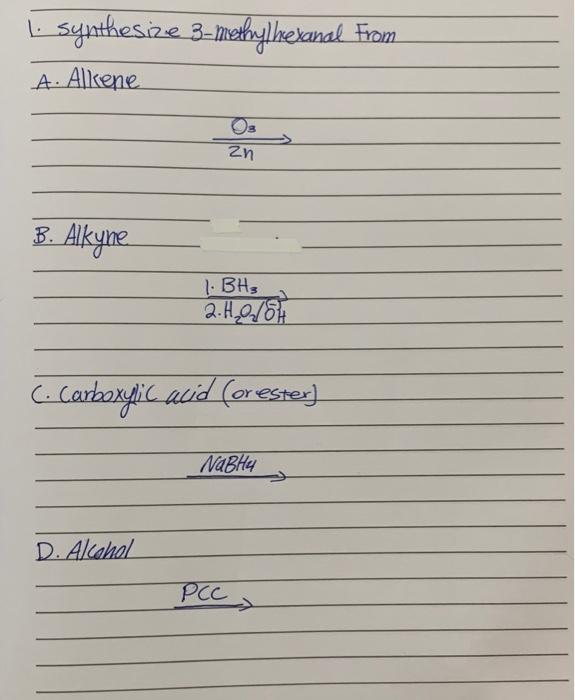 1. Synthesize 3-methylhexanal From
A. Alkene
O₃
Zn
B. Alkyne
1. BH₃
2. H₂O₂/ŌH
C. Carboxylic acid (or ester)
NaBH4
D. Alcohol
PCC